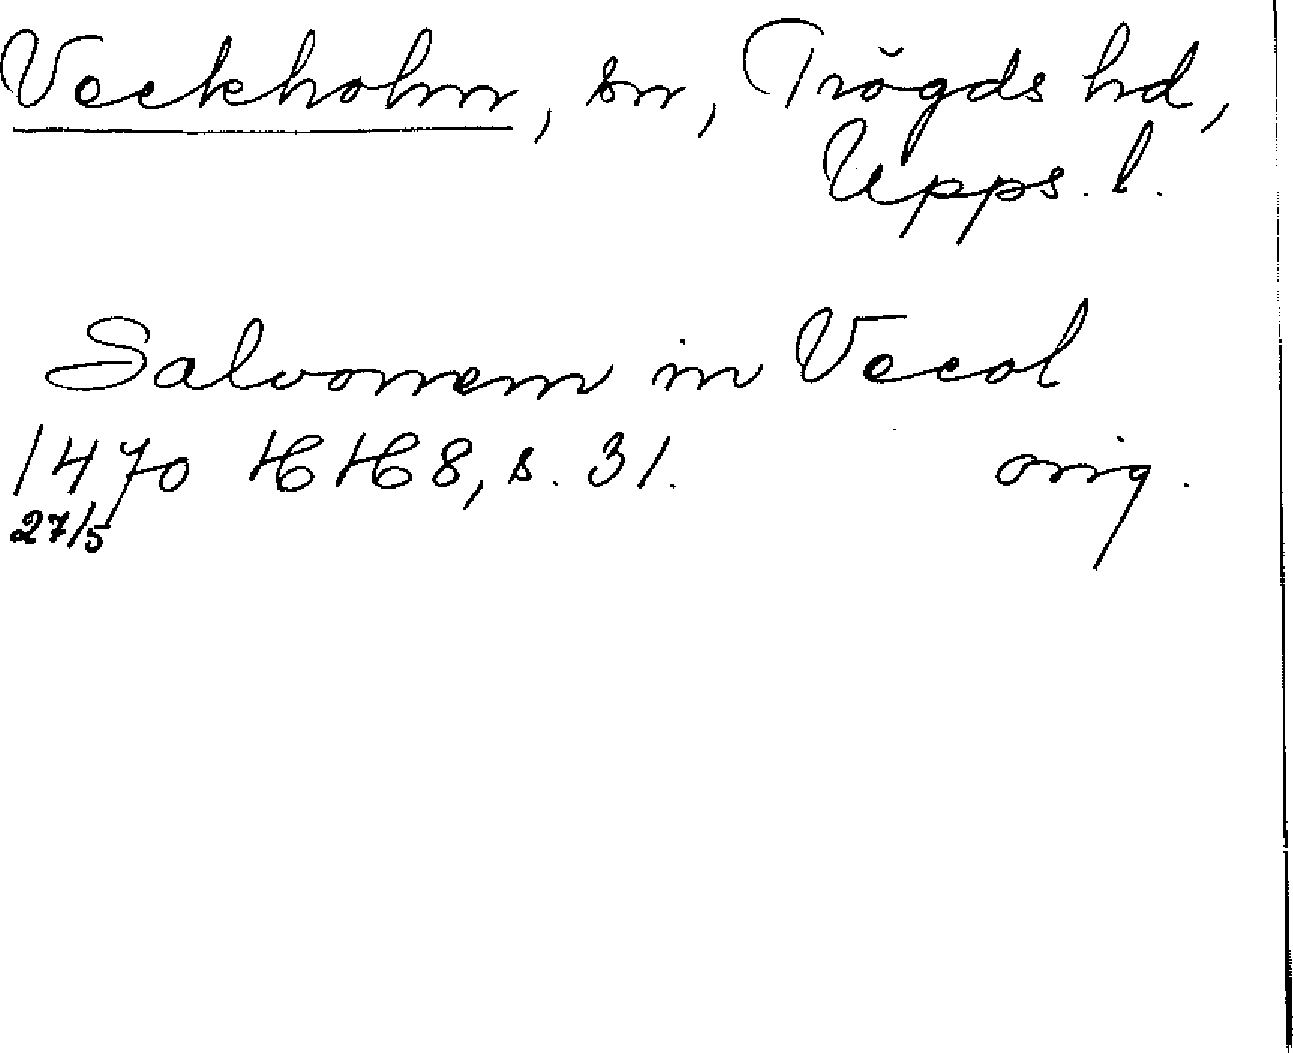 Veckholm, sn, Trögds hd,
Upps. l.
Salvonem in Vecol
1470 HH 8, s. 31. orig.
27/5